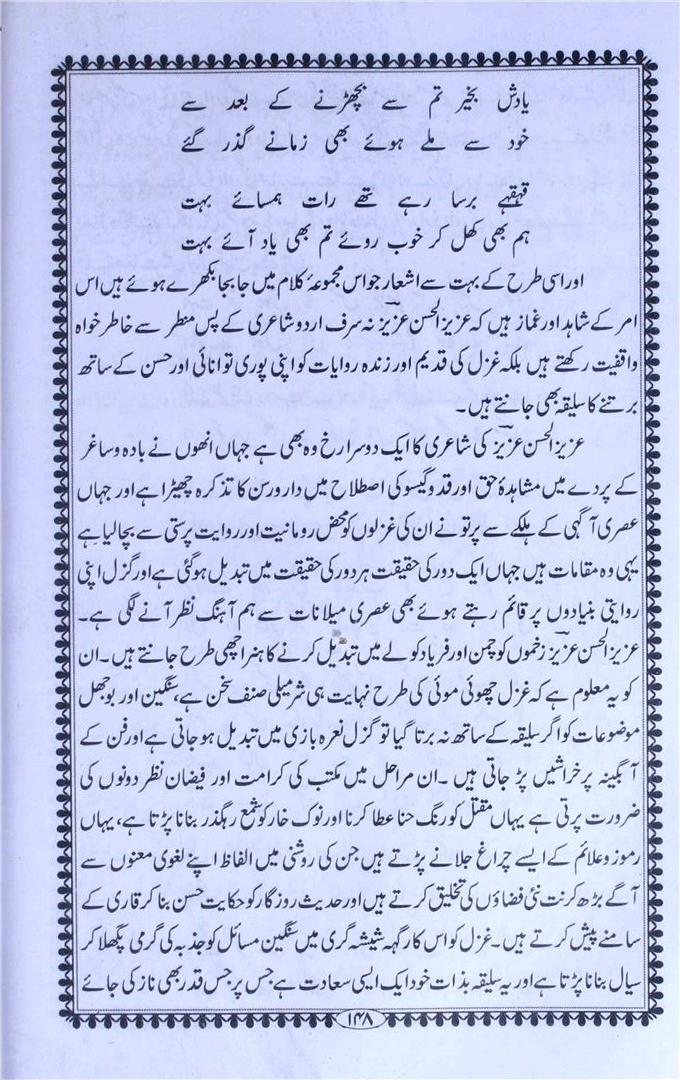 یادش بخیر تم سے بچھڑنے کے بعد سے
خود سے ملے ہوئے بھی زمانے گذر گئے
قہقہے برسا رہے تھے رات ہمسائے بہت
ہم بھی کھل کر خوب روئے تم بھی یاد آئے بہت
اور اسی طرح کے بہت سے اشعار جو اس مجموعۂ کلام میں جابجا بکھرے ہوئے ہیں اس
امر کے شاہد اور غماز ہیں کہ عزیز الحسن عزیز نہ سرف اردو شاعری کے پس منطر سے خاطر خواہ
واقفیت رکھتے ہیں بلکہ غزل کی قدیم اور زندہ روایات کو اپنی پوری توانائی اور حسن کے ساتھ
برتنے کا سلیقہ بھی جانتے ہیں۔
عزیز الحسن عزیز کی شاعری کا ایک دوسرا رخ وہ بھی ہے جہاں انھوں نے بادہ و ساغر
کے پردے میں مشاہدۂ حق اور قد و گیسو کی اصطلاح میں دار ورسن کا تذکرہ چھیڑا ہے اور جہاں
عصری آگہی کے ہلکے سے پرتو نے ان کی غزلوں کو محض رومانیت اور روایت پرستی سے بچالیا ہے
یہی وہ مقامات ہیں جہاں ایک دور کی حقیقت ہر دور کی حقیقت میں تبدیل ہو گئی ہے اور گزل اپنی
روایتی بنیادوں پر قائم رہتے ہوئے بھی عصری میلانات سے ہم آہنگ نظر آنے لگی ہے۔
عزیز الحسن عزیز زخموں کو چمن اور فریاد کو لے میں تبدیل کرنے کا ہنر اچھی طرح جانتے ہیں۔ ان
کو یہ معلوم ہے کہ غزل چھوئی موئی کی طرح نہایت ہی شرمیلی صنف سخن ہے، سنگین اور بوجھل
موضوعات کو اگر سلیقہ کے ساتھ نہ برتا گیا تو گزل نعرہ بازی میں تبدیل ہو جاتی ہے اور فن کے
آبگینہ پر خراشیں پڑ جاتی ہیں۔ ان مراحل میں مکتب کی کرامت اور فیضان نظر دونوں کی
ضرورت پرتی ہے یہاں مقتل کو رنگ حنا عطا کرنا اور نوک خار کو شمع رہگذر بنانا پڑتا ہے، یہاں
رموز و علائم کے ایسے چراغ جلانے پڑتے ہیں جن کی روشنی میں الفاظ اپنے لغوی معنوں سے
آگے بڑھ کر نت نئی فضاؤں کی تخلیق کرتے ہیں اور حدیث روزگار کو حکایت حسن بنا کر قاری کے
سامنے پیش کرتے ہیں۔ غزل کو اس کارگہہ شیشہ گری میں سنگین مسائل کو جذبہ کی گرمی پگھلا کر
سیال بنانا پڑتا ہے اور یہ سلیقہ بذات خود ایک ایسی سعادت ہے جس پر جس قدر بھی ناز کی جائے
۱۴۸